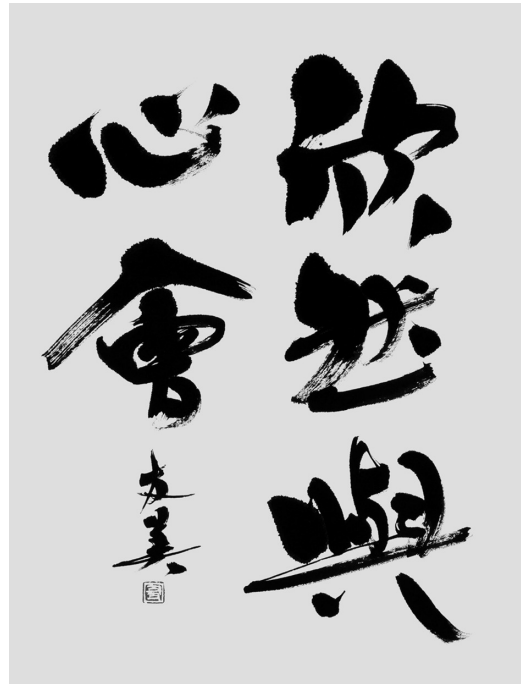 欣然與
心會
友美